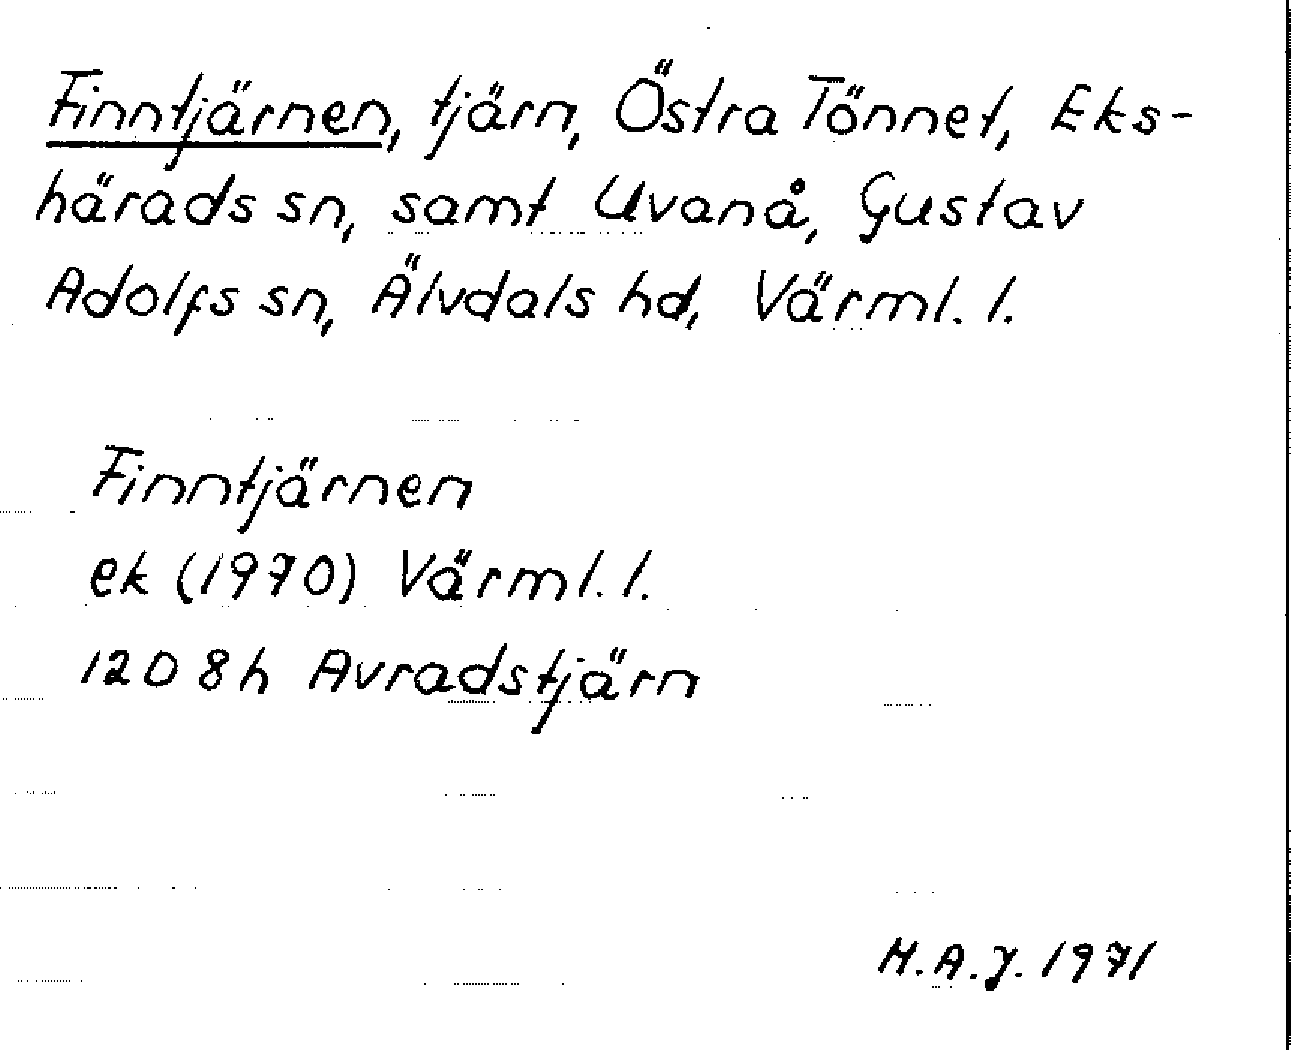 Finntjärnen, tjärn, Östra Tönnet, Eks-
härads sn, samt Uvanå, Gustav
Adolfs sn, Älvdals hd, Värml. l.
Finntjärnen
ek (1970) Värml. l.
12D 8h Avradstjärn
H.A.J. 1971